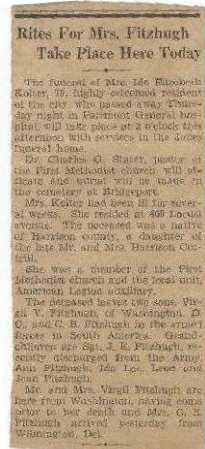 Rites For Mrs. Fitzhugh
Take Place Here Today
The funeral of Mrs. Ida Elizabeth
Kolter, 79, highly esteemed resident
of the city who passed away Thurs-
day night in Fairmont General hos-
pital, will take place at 2 o'clock this
afternoon with services in the Jones
funeral home.
Dr. Charles G. Slater, pastor of
the First Methodist church will of-
ficiate and burial will be made in
the cemetery at Bridgeport.
Mrs. Kolter had been ill for sever-
al weeks. She resided at 409 Locust
avenue. The deceased was a native
of Harrison county, a daughter of
the late Mr. and Mrs. Harrison
She was a member of the First
Methodist church and the local unit,
American Legion auxiliary.
The deceased leaves two sons, Vir-
gil V. Fitzhugh, of Washington, D.
C., and C. B. Fitzhugh in the armed
forces in South America. Grand-
children are Sgt. J. E. Fitzhugh, re-
cently discharged from the Army,
Ann Fitzhugh, Ida Lee, Leon and
Jean Fitzhugh.
Mr. and Mrs. Virgil Fitzhugh are
here from Washington, having come
prior to her death and Mrs. C. B.
Fitzhugh arrived yesterday from
Wilmington, Del.